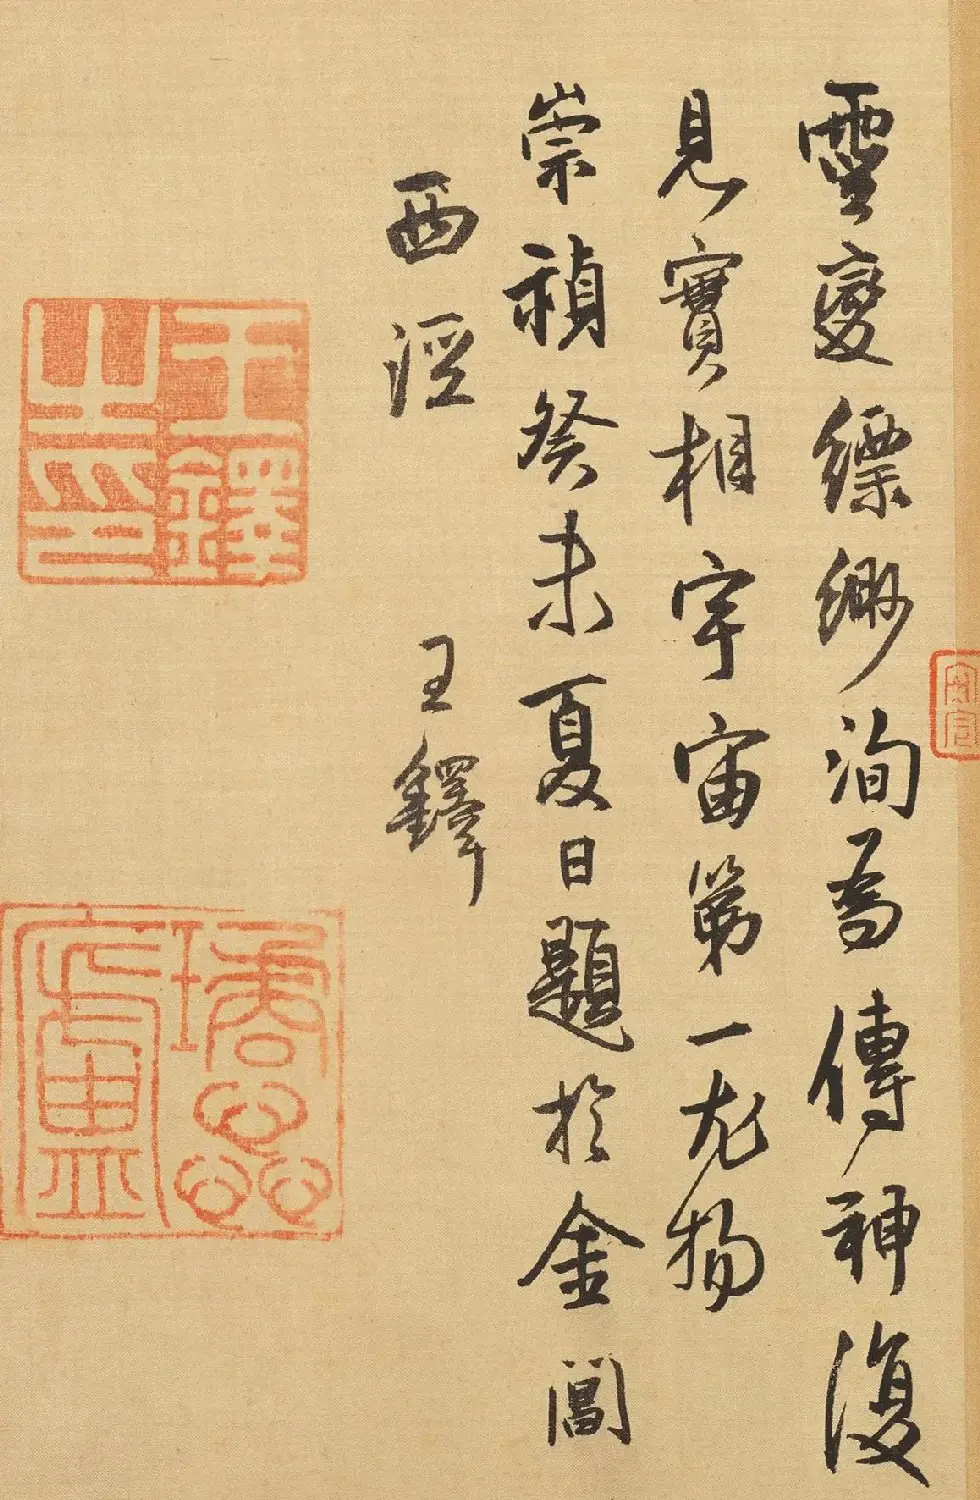 靈變縹緲洵為傳神復
見實相宇宙第一尤物
崇禎癸未夏日題於金閶
西涇 王鐸
王鐸之印
璚惢廬